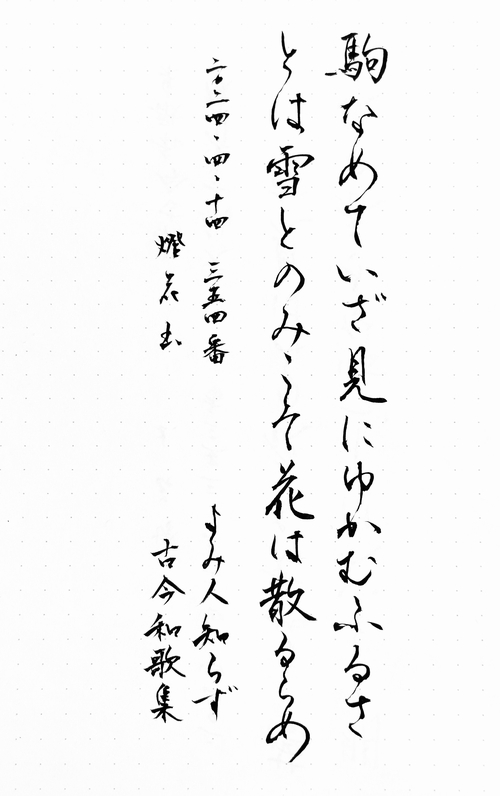 駒なめていざ見にゆかむふるさ
とは雪とのみこそ花は散るらめ
二〇二四、四、十四　三五四番
よみ人知らず
燈花書
古今和歌集